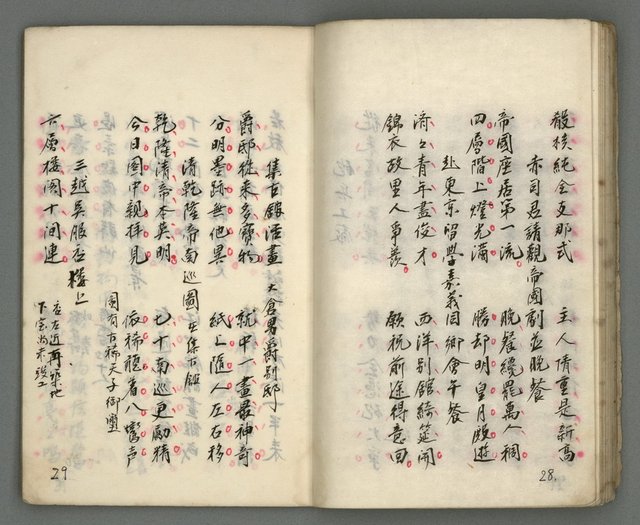 殽核純全更那式 主人情重是新高
赤司君請觀帝國劇並晚餐
帝國座居第一流 晚餐纔罷萬人稠
四層階上燈光滿 勝却明皇月殿遊
赴東京留學嘉義同鄉會午餐
濟々青年盡俊才 西洋別館綺筵開
錦衣故里人爭羨 願祝前途得意回
28.
集古館活畫 大倉男爵別邸
爵邸從來多寶物 就中一畫最神奇
分明墨跡無他異 紙上隨人左右移
清乾隆帝南巡圖 在集古館
乾隆清帝本英明 七十南巡更勵精
今日圖中親拜見 依稀聽着八鸞聲
圖有古稀天子御璽
三越吳服店樓上
六層樓閣十間連
店左近再築地
下室尚未竣工
29